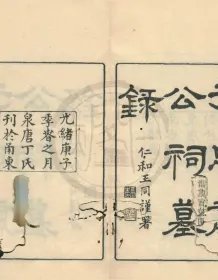 公祠墓
錄
仁和王同謹署
光緒庚子
季春之月
泉唐丁氏
刊於甬東